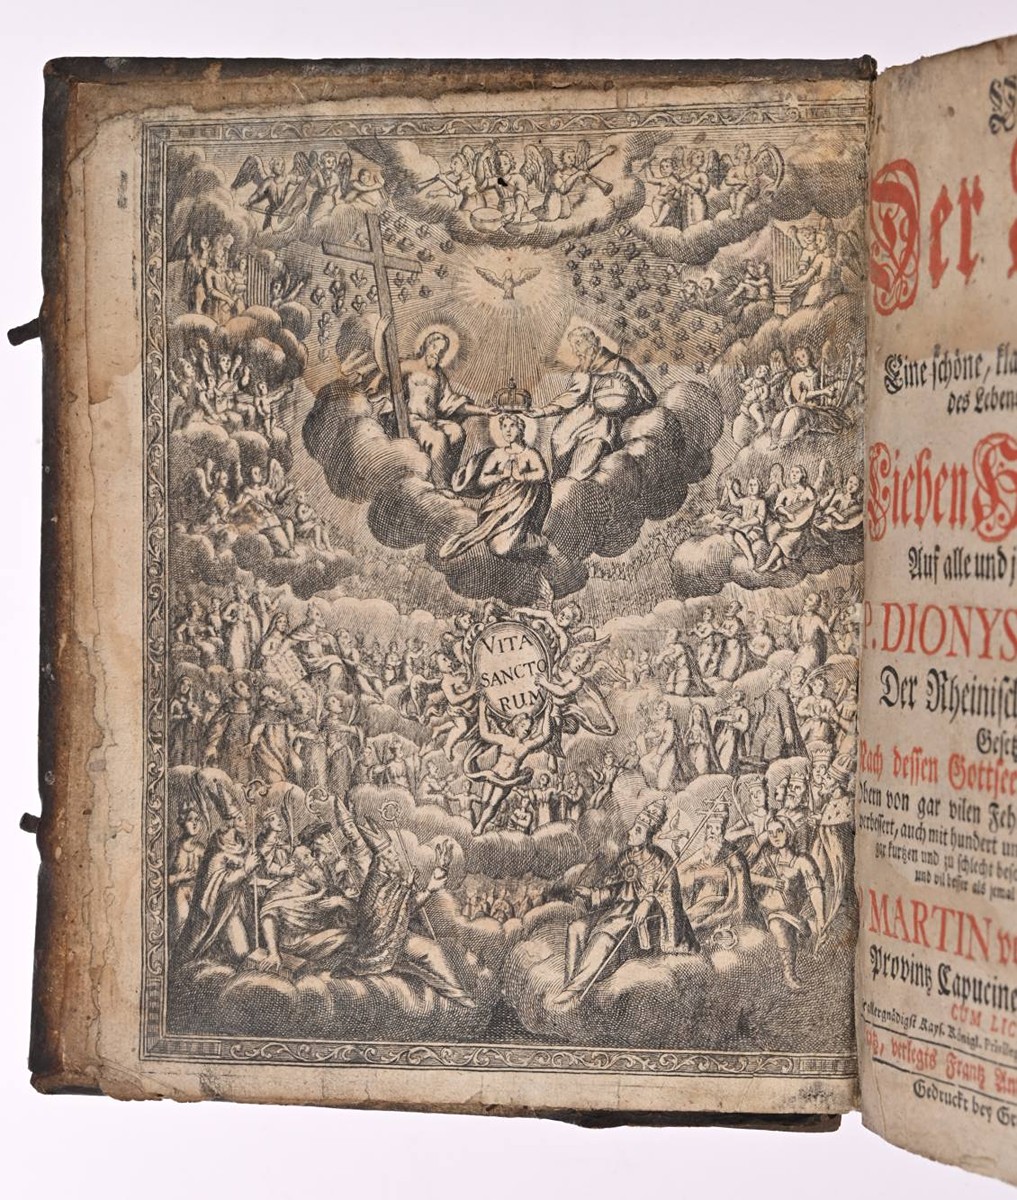 VITA
SANCTO
RUM
Der
Eine schöne, kla
des Lebens
Lieben H
Auf alle und j
P. DIONYS
Der Rheinisch
Gesetz
Nach dessen Gottsee
von gar vilen Feh
verbessert, auch mit hundert un
zu kurtzen und zu schlecht besc
und vil besser als jemal
MARTIN v
Provintz Capucine
CUM LIC
allergnädigst Kays. Königl. Privileg
verlegts Frantz An
Gedruckt bey Gr